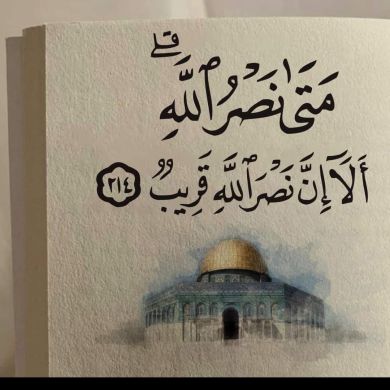 مَتَىٰ نَصْرُ ٱللَّهِ ۗ
أَلَآ إِنَّ نَصْرَ ٱللَّهِ قَرِيبٌ ٢١٤